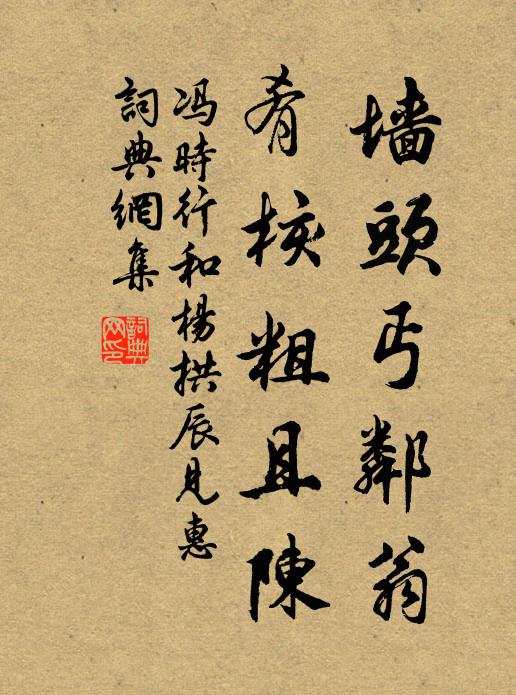 墙頭丐鄰翁
肴核粗且陳
冯時行和楊拱辰見惠
詞典網集
詞典网印